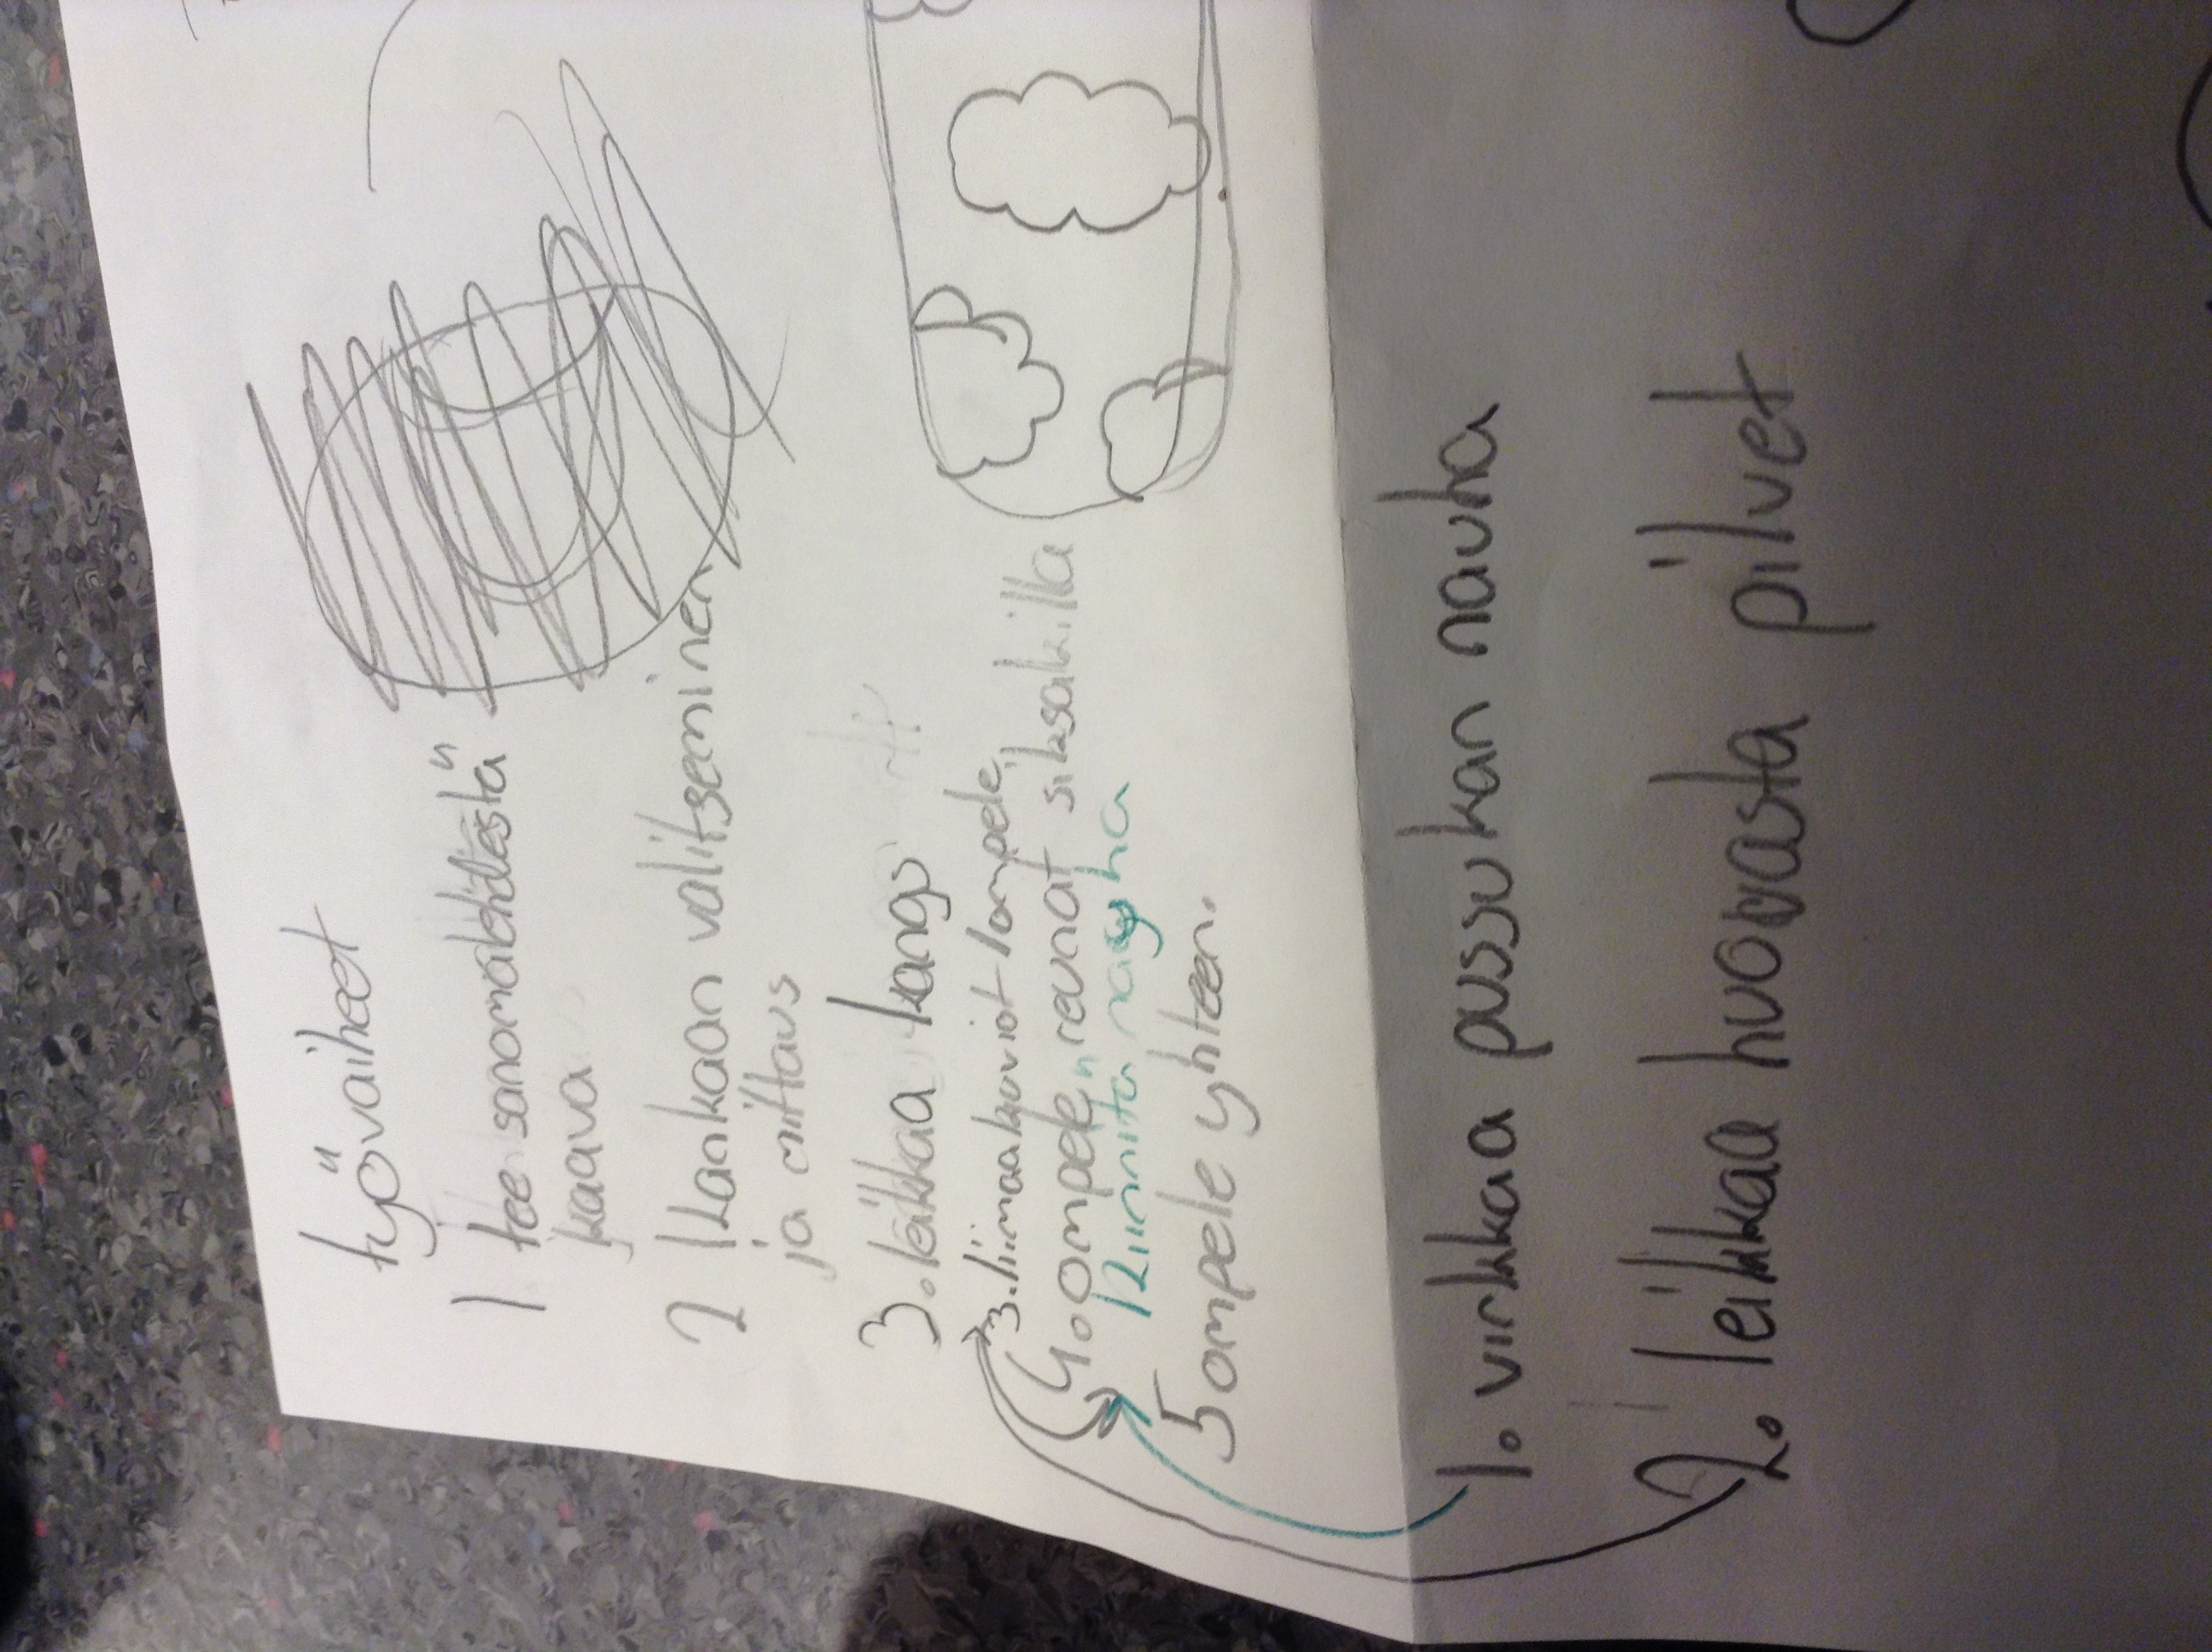 työvaiheet
1 tee sanomalehdestä
kaava
2 kankaan valitseminen
ja mittaus
3. leikkaa kangs
3. liimaa kuviot / ompele
4. ompele reunat siksakilla
kiinnitä nauha
5 ompele yhteen.
1. virkkaa pussukan nauha
2. leikkaa huovasta pilvet